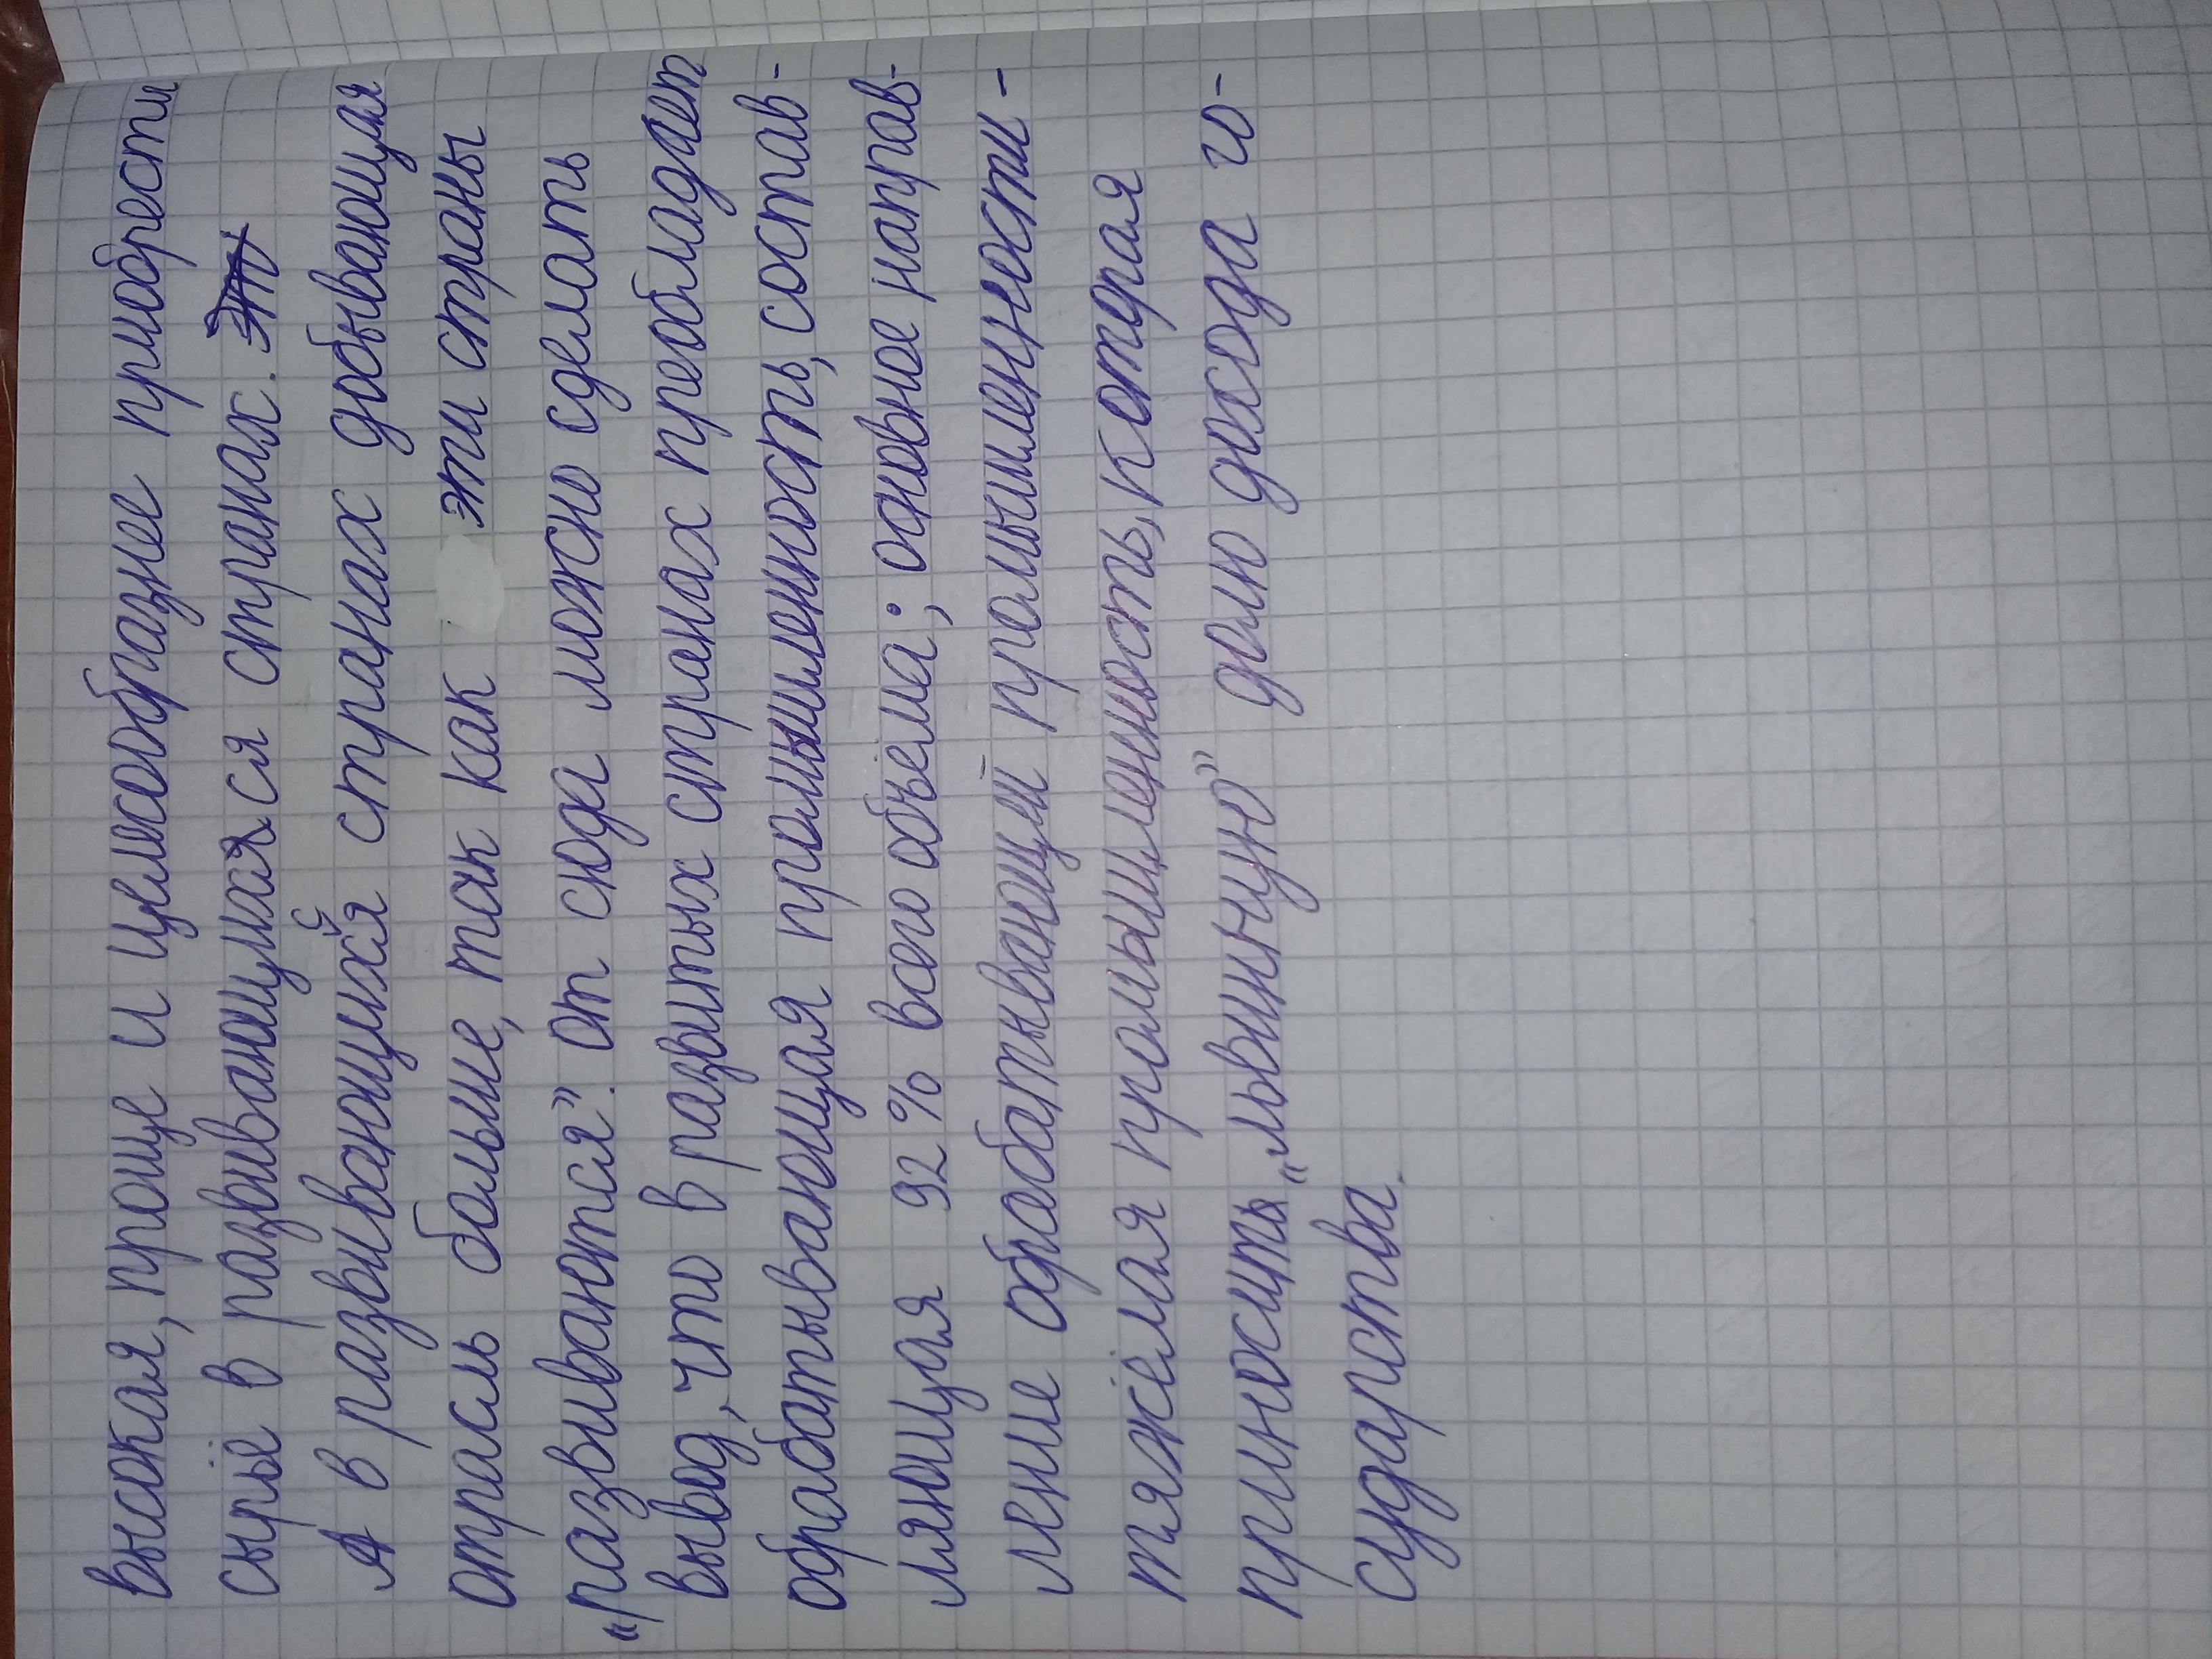 высокая, проще и целесобразнее приобрести
сырьё в развивающихся странах.
А в развивающихся странах добывающая
отрасль больше, так как эти страны
"развиваются". От сюда можно сделать
вывод, что в развитых странах преобладает
обрабатывающая промышленность, состав-
ляющая 92% всего объёма; основное направ-
ление обрабатывающей промышленности -
тяжёлая промышленность, которая
приносить „львинную" долю дохода го-
сударства.